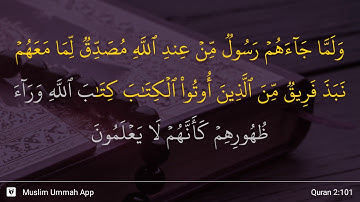 وَلَمَّا جَآءَهُمۡ رَسُولٞ مِّنۡ عِندِ ٱللَّهِ مُصَدِّقٞ لِّمَا مَعَهُمۡ
نَبَذَ فَرِيقٞ مِّنَ ٱلَّذِينَ أُوتُواْ ٱلۡكِتَٰبَ كِتَٰبَ ٱللَّهِ وَرَآءَ
ظُهُورِهِمۡ كَأَنَّهُمۡ لَا يَعۡلَمُونَ
Muslim Ummah App
Quran 2:101